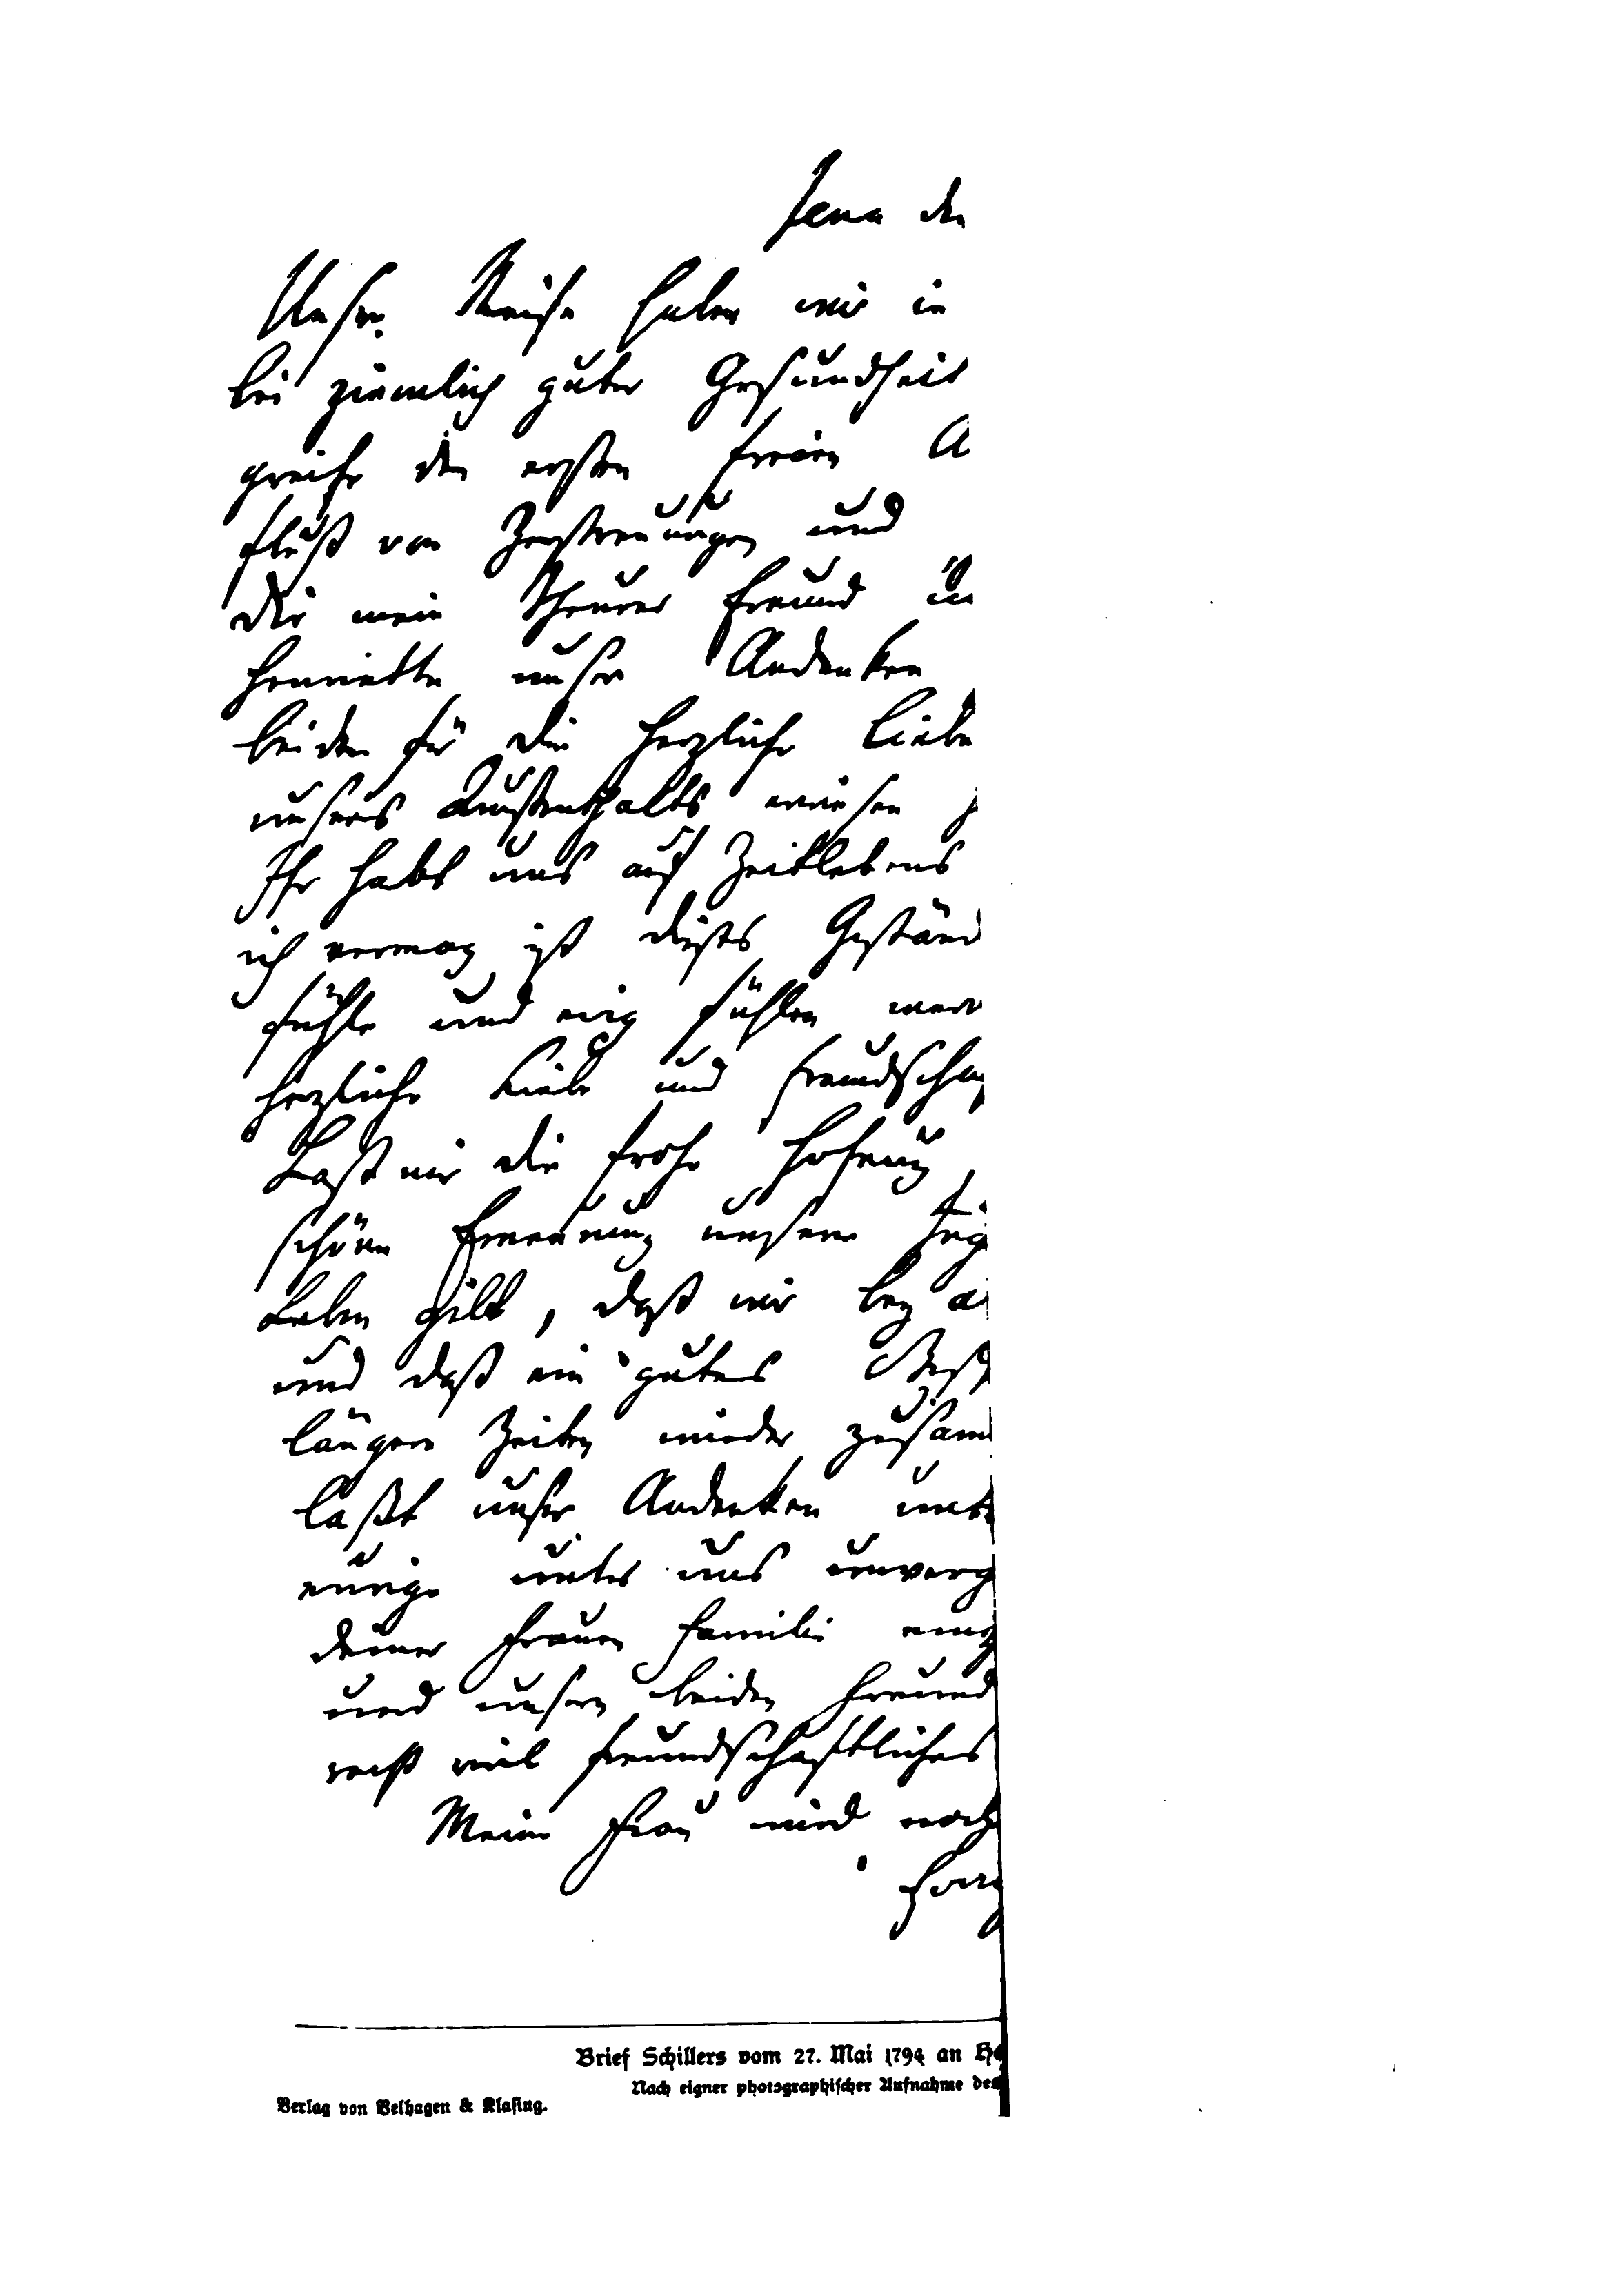 Jena den
Unsre Reise haben wir in
bei ziemlich guter Gesundheit
greife den ersten freien A
fluß von Zerstreuungen und
Dir mein theurer Freund un
Henriette unser Andenken
beiden für die herzliche Liebe
unsers Aufenthalts erwiesen
Ihr habt uns auf Zeitlebens
ich vermag ist dieses Geständ
fühle und ewig fühlen werd
herzliche Liebe und Freundscha
Laßt mir die frohe Hofnung
schöne Erneurung unserer Jug
Leben gilt, daß wir bey a
und daß ein gutes Gesch
längere Zeiten wieder zusam
laßt unser Andenken unt
eurige unter uns unverg
deiner Frauen Familie
und unsern beiden Freund
recht viel freundschaftliches
Meine Frau wird noch
Brief Schillers vom 27. Mai 1794 an Ho
Nach eigner photographischer Aufnahme des
Verlag von Velhagen & Klasing.